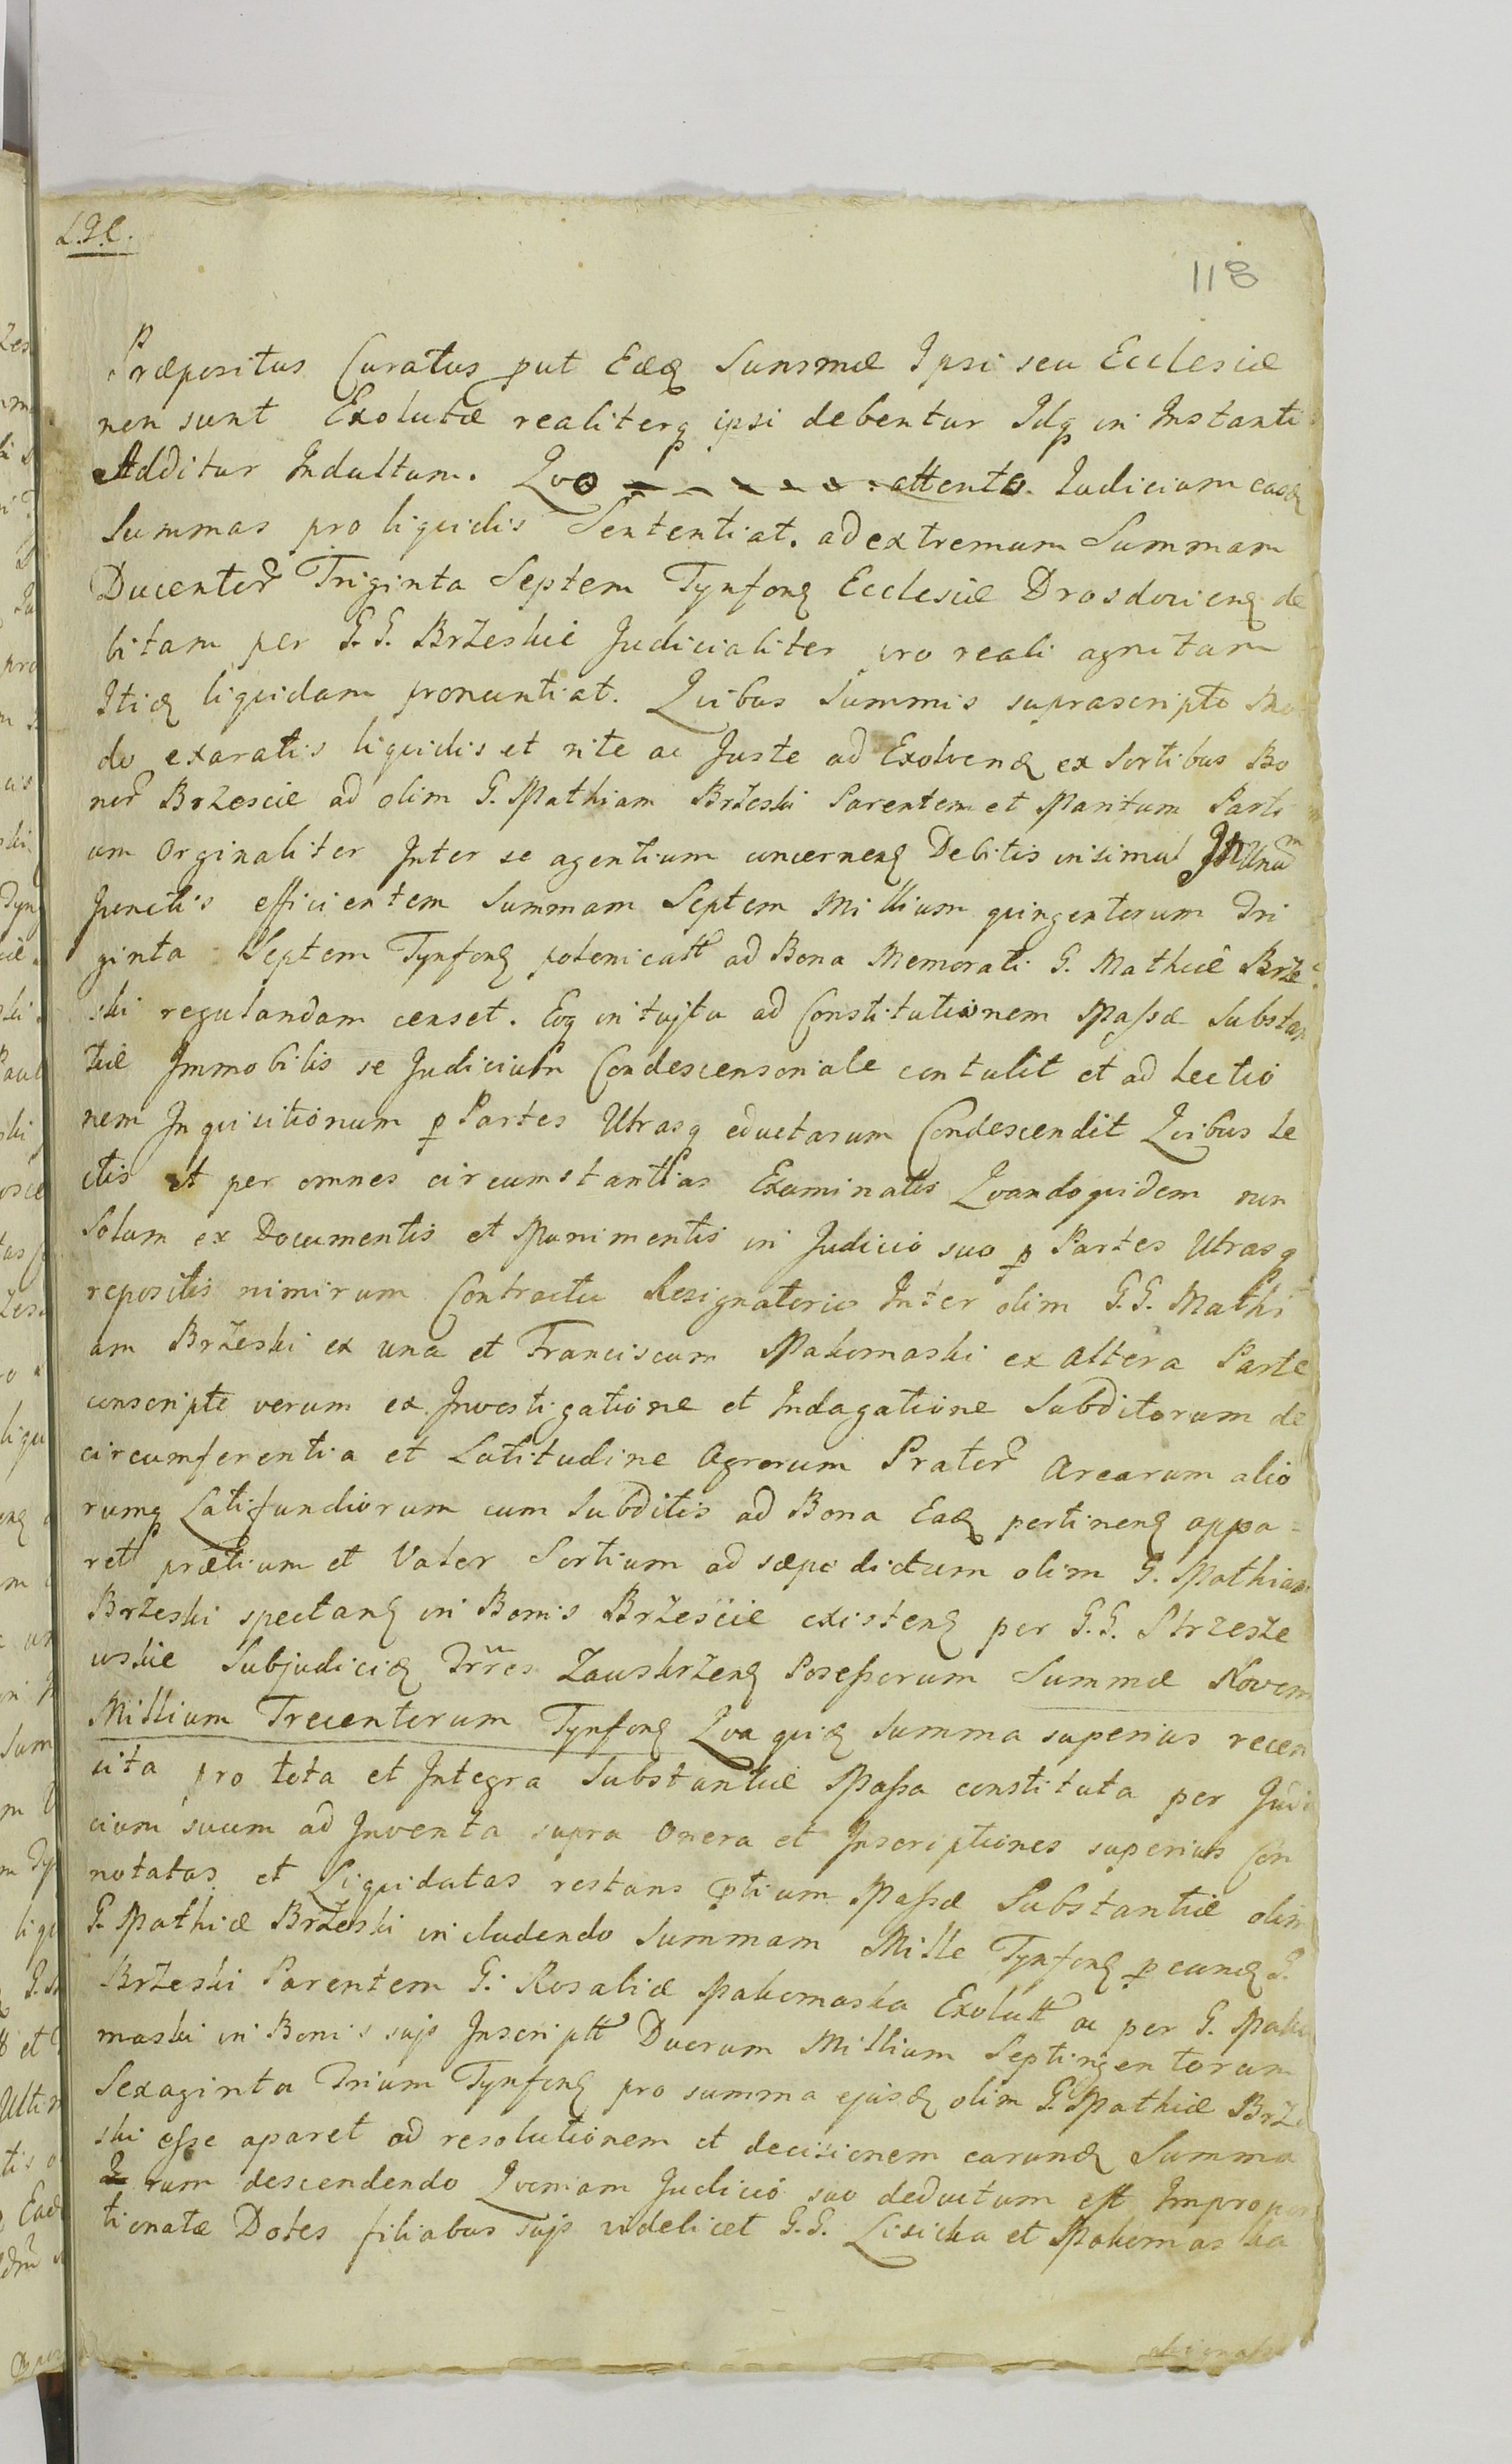 L.J.C.
118
Præpositus Curatus put Eædę Summæ Ipsi seu Ecclesiæ
non sunt Exolutæ realiterq ipsi debentur Idq in Instanti
Additur Indultum. Qvo attento. Iudicium easdę
Summas pro liquidis Sententiat. ad extremum Summam
Ducentor Triginta Septem Tynfonę Ecclesiæ Drosdovienę de
bitam per G.G. Brzeskie Judicialiter pro reali agnitam
Itidę liquidam pronuntiat. Qvibus Summis suprascripto Mo
do exaratis liquidis et rite ac Juste ad Exolvendę ex Sortibus Bo
nor Brzescie ad olim G. Mathiam Brzeski Parentem et Maritum Parti
um Orginaliter Inter se agentium concernenę Debitis insimul In Unam
Junctis efficientem Summam Septem Millium quingentorum Tri
ginta Septem Tynfonę polonicatt ad Bona Memorati G. Mathiæ Brze
ski regulandam censet. Eoq intujtu ad Constitutionem Massæ Substan
tiæ Immobilis se Judicium Condescensoriale contulit et ad Lectio
nem Inquisitionum p Partes Utrasq eductarum Condescendit Qvibus Le
ctis et per omnes circumstantias Examinatis Qvandoquidem non
Solum ex Documentis et Munimentis in Judicio suo p Partes Utrasq
repositis nimirum Contractu Resignatorio Inter olim G.G. Mathi
am Brzeski ex una et Franciscum Makomaski ex altera Parte
conscripto verum ex Investigatione et Indagatione Subditorum de
circumferentia et Latitudine Agrorum Prator Arearum alio
rumq Latifundiorum cum Subditis ad Bona Eadę pertinenę appa=
ret prætium et Valor Sortium ad sæpe dictum olim G. Mathiam
Brzeski spectanę in Bonis Brzescie existenę per G.G. Strzesze
wskie Subjudicię Trrês Zauskrzenę Posessorum Summæ Novem
Millium Trecentorum Tynfonę Qva quidę Summa superius recen
sita pro tota et Integra Substantiæ Massa constituta per Judi
cium suum ad Inventa supra Onera et Inscriptiones superius Con
notatas et Liquidatas restans ptium Massæ Substantiæ olim
G. Mathiæ Brzeski includendo Summam Mille Tynfonę p eundę G.
Brzeski Parentem G. Rosaliæ Makomaska Exolutt ac per G. Mako
maski in Bonis sujs Inscriptt Duorum Millium Septingentorum
Sexaginta Trium Tynfonę pro summa ejusdę olim G. Mathiæ Brze
ski esse aparet ad resolutionem et decisionem earundę Summa
rum descendendo Qvoniam Judicio suo deductum est Impropor
tionatæ Dotes filiabus sujs videlicet G.G. Lisicka et Makomaska